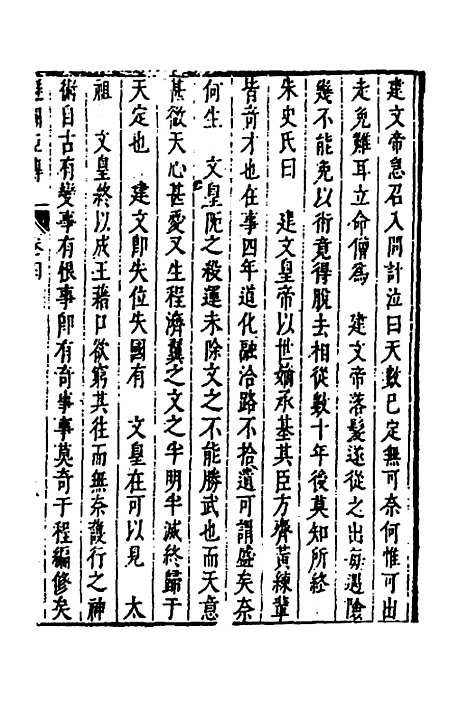 建文帝急召入問計泣曰天數已定無可奈何惟可出
走免難耳立命僧爲　建文帝落髮遂從之出每遇險
幾不能免以術竟得脫去相從數十年後莫知所終
朱史氏曰　建文皇帝以世嫡承基其臣方齊黃練輩
皆奇才也在事四年道化融洽路不拾遺可謂盛矣奈
何生　文皇阨之殺運未除文之不能勝武也而天意
甚微天心甚愛又生程濟翼之文之半明半滅終歸于
天定也　建文卽失位失國有　文皇在可以見　太
祖　文皇終以成王藉口欲窮其往而無奈護行之神
術自古有變事有恨事卽有奇事事莫奇于程編修矣
卷四